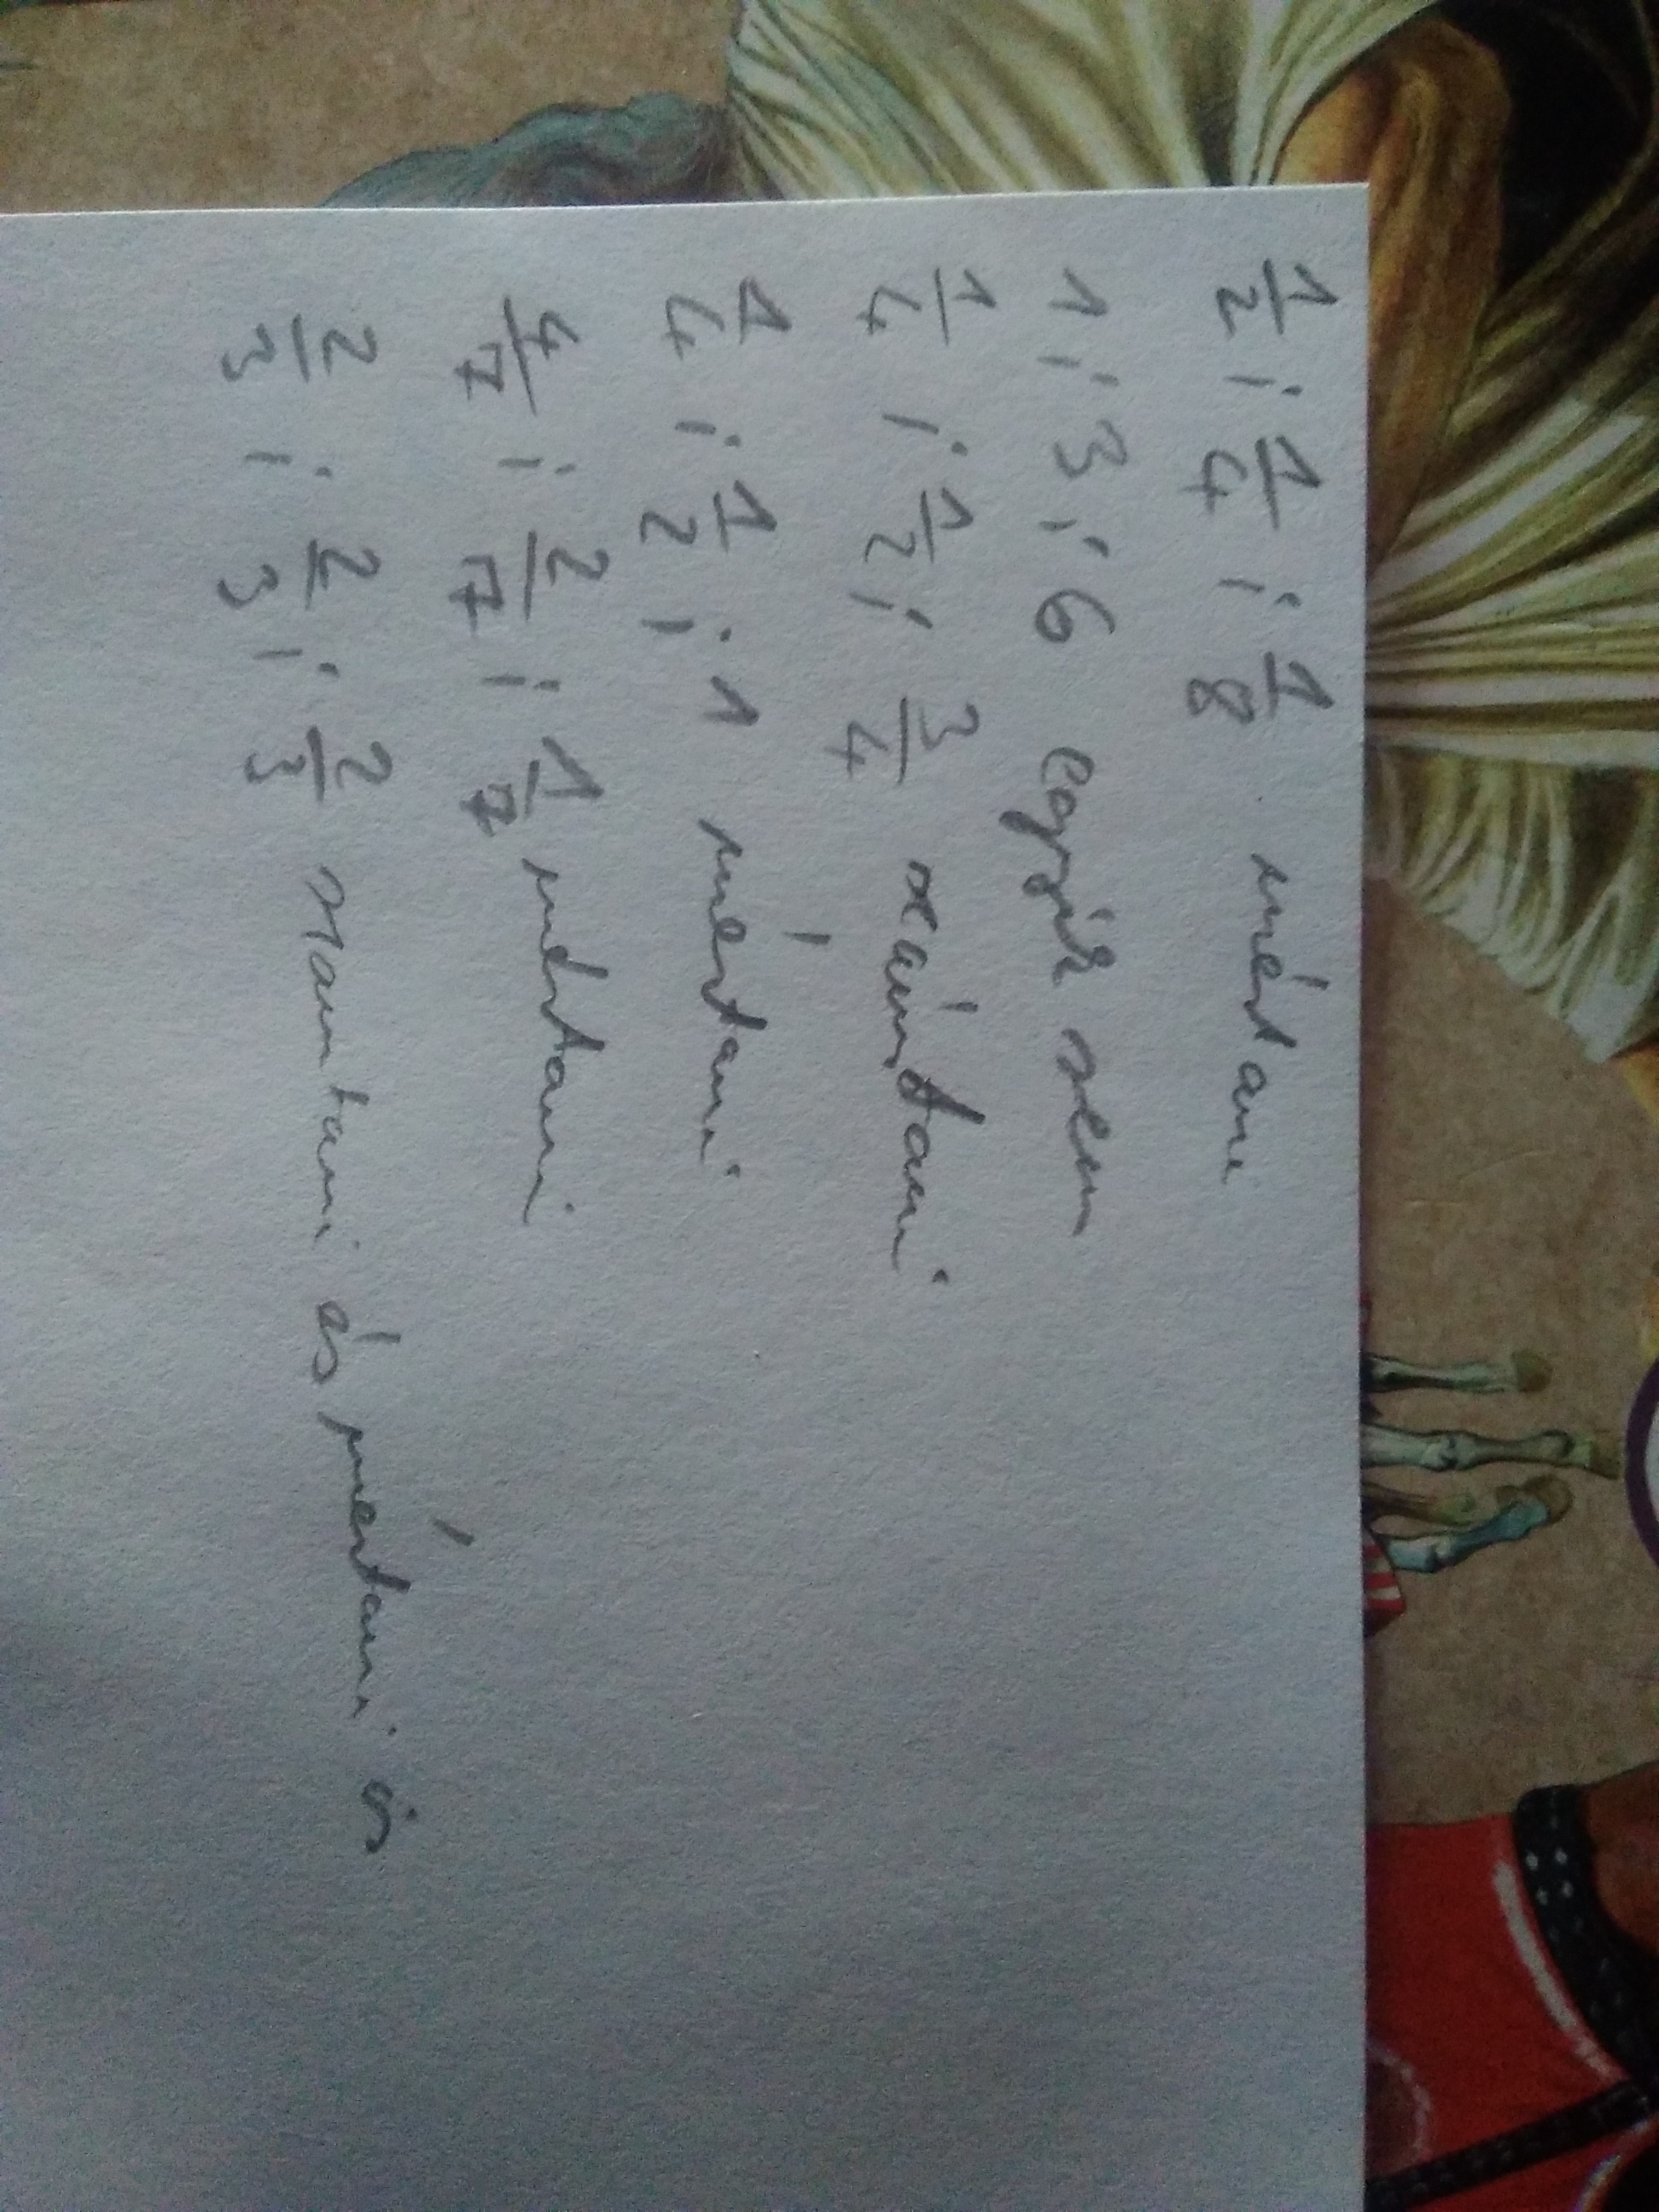 1/2 ; 1/4 ; 1/8 mértani
1 ; 3 ; 6 egyik sem
1/4 ; 1/2 ; 3/4 számtani
1/4 ; 1/2 ; 1 mértani
4/7 ; 2/7 ; 1/7 mértani
2/3 ; 2/3 ; 2/3 számtani és mértani is